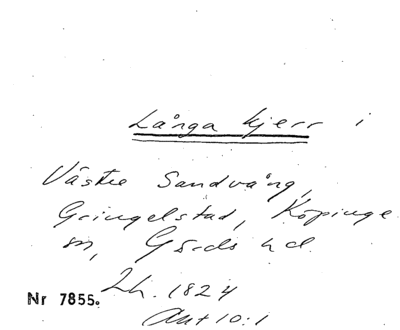 Långa kjerr i
Västre Sandvång,
Gringelstad, Köpinge
sn, Gärds hd.
Lh. 1824
Nr 7855.
Akt 10:1